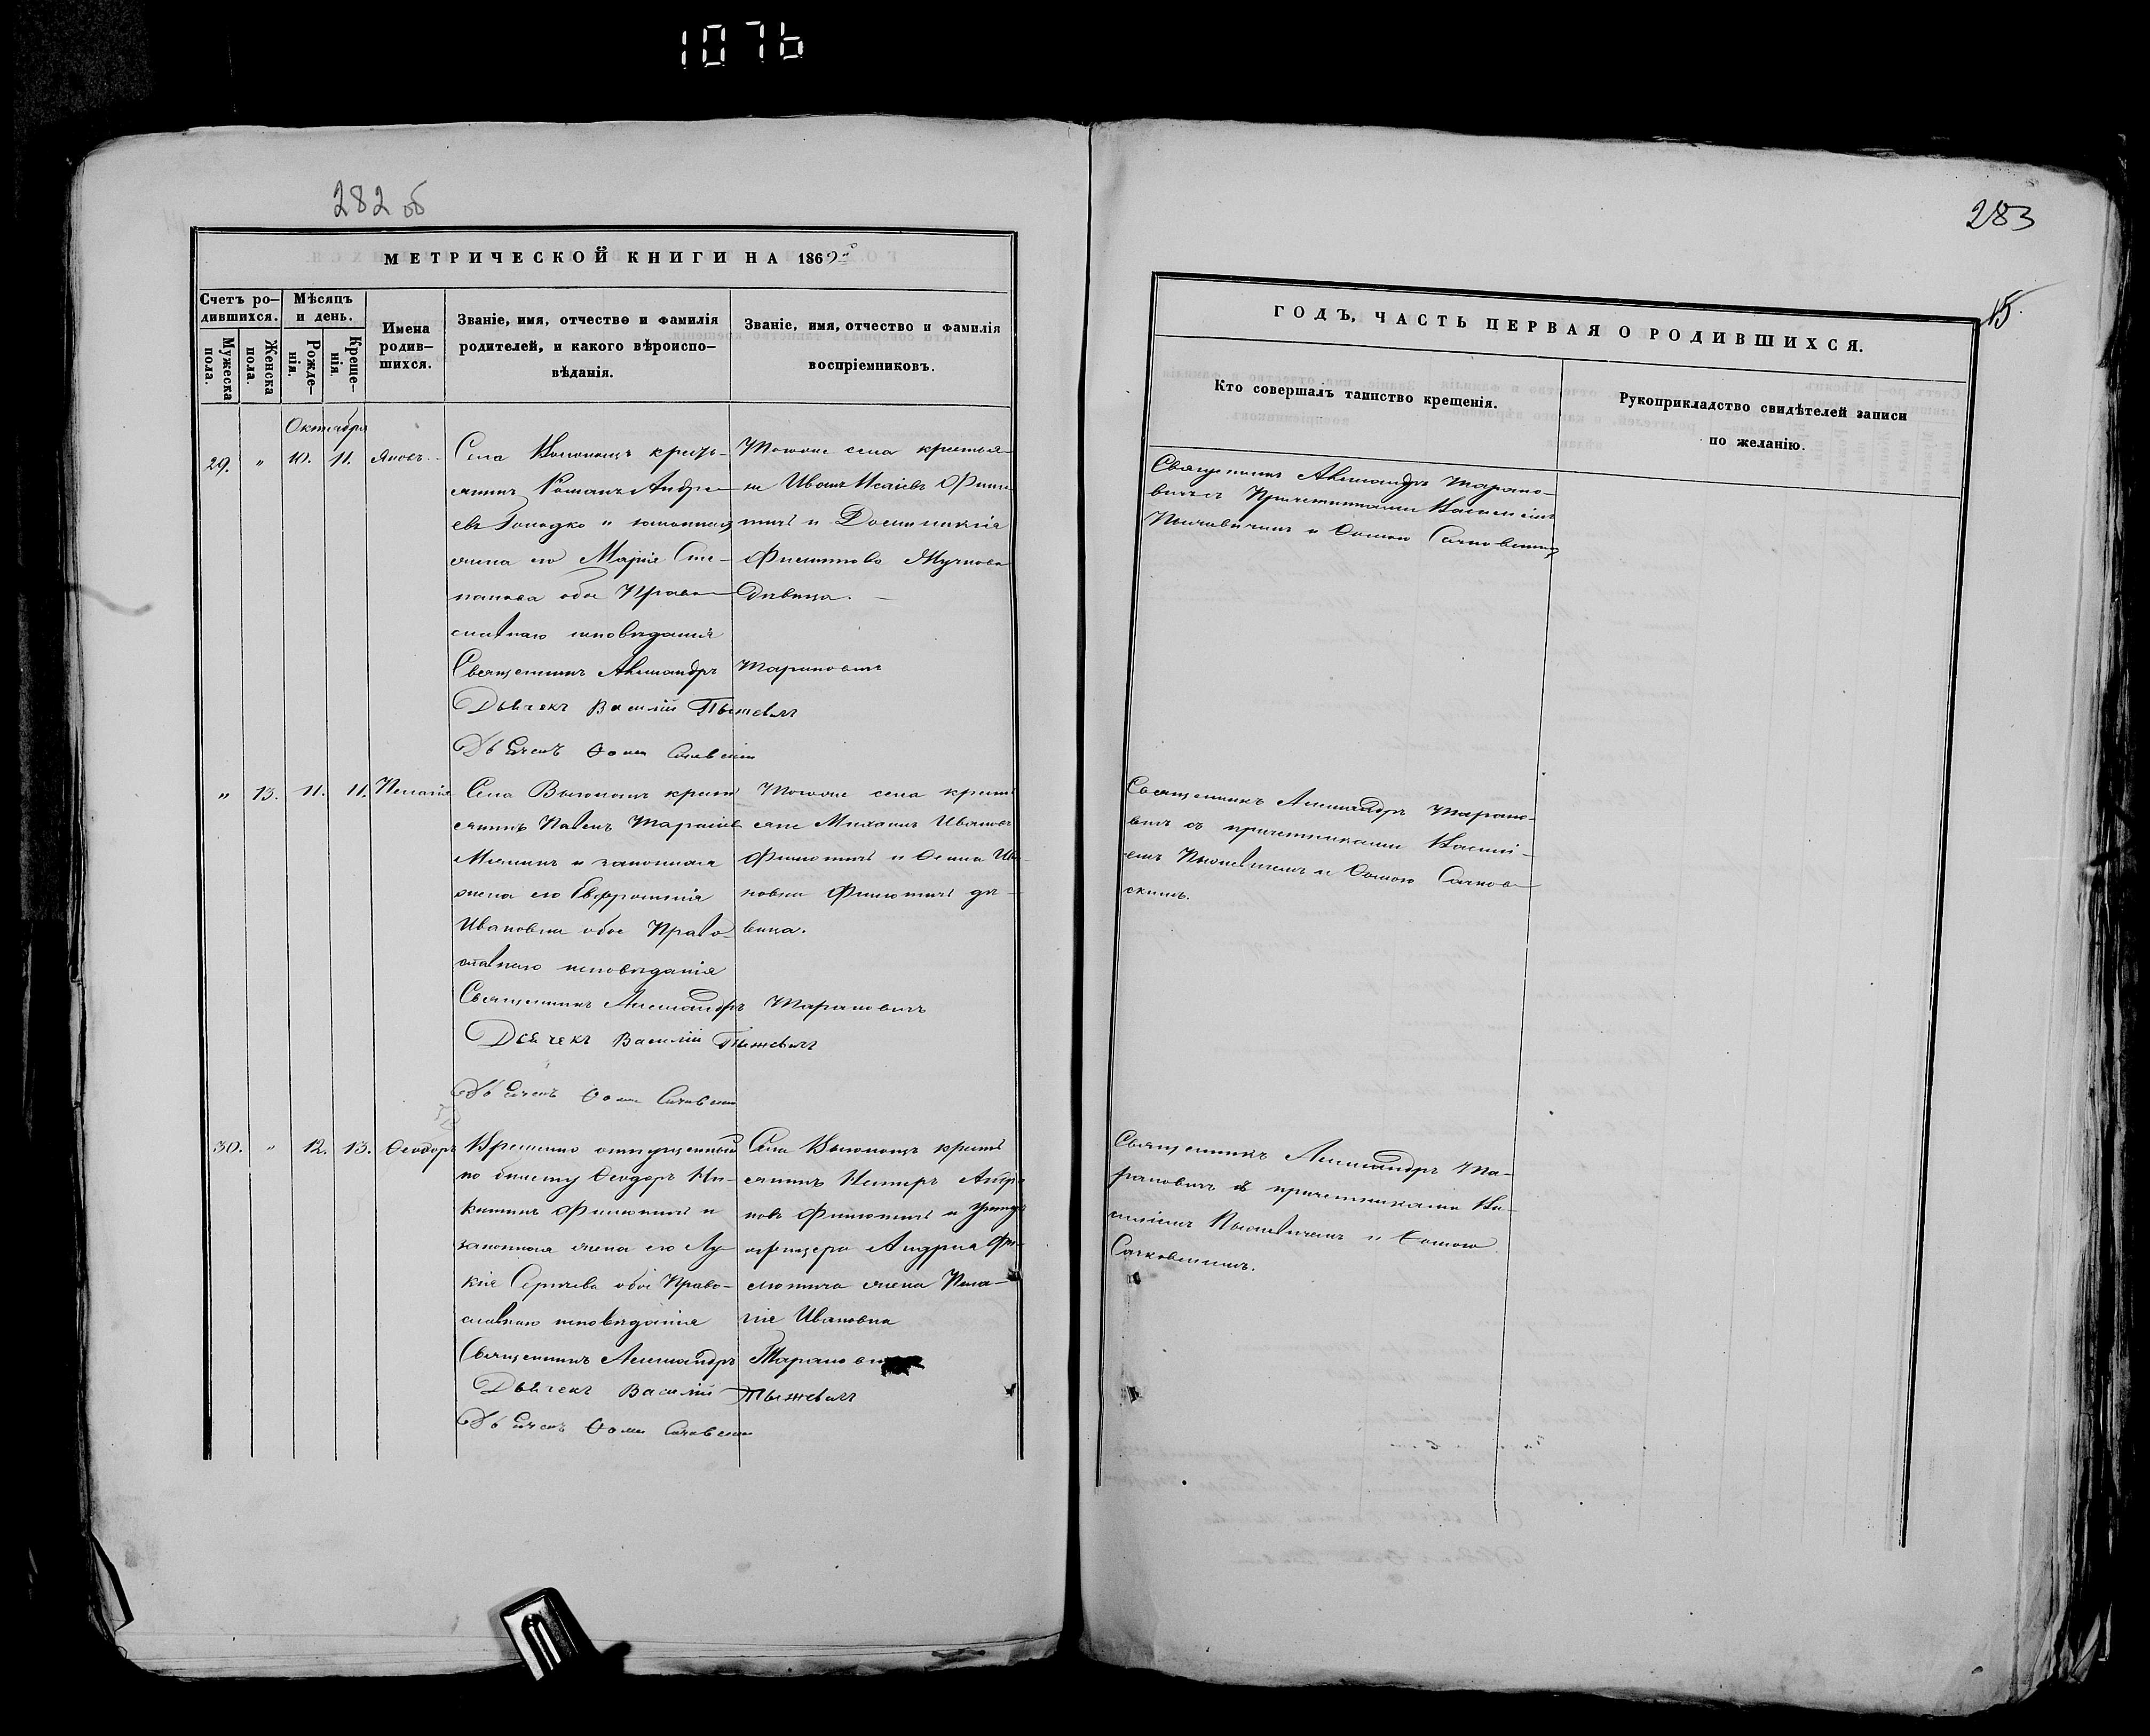 1076
282 об
МЕТРИЧЕСКОЙ КНИГИ НА 1869
Счетъ ро-
дившихся.
Мужеска
пола.
Женска
пола.
Мѣсяцъ
и день.
Рожде-
нія.
Креще-
нія.
Имена
родив-
шихся.
Званіе, имя, отчество и фамилія
родителей, и какого вѣроиспо-
вѣданія.
Званіе, имя, отчество и фамилія
воспріемниковъ.
Октября
29. " 10. 11. Яковъ.
Села крестъ-
янинъ Романъ Андре-
евъ и законная
жена его Марія Сте-
панова обое Право-
славнаго исповѣданія
Священникъ Александръ Тарановичъ
Дьячекъ Василій Пыжевичъ
Дьячекъ Ѳома
Тогоже села крестья-
не Иванъ Исаіевъ
и Домникія
Филиппова
Дѣвица.
" 13. 11. 11. Пелагія
Села крест
янинъ Павелъ Тарасіев
и законная
жена его Евфросинія
Ивановна обое Право-
славнаго исповѣданія
Священникъ Александръ Тарановичъ
Дьячекъ Василій Пыжевичъ
Дьячекъ Ѳома
Тогоже села крест
яне Михаилъ Ивановъ
и Ива-
новна дѣ-
вица.
30. " 12. 13. Ѳеодоръ
Временно отпущенный
по билету Ѳеодоръ Ни-
китинъ и
законная жена его Лу-
кія Сергѣева обое Право-
славнаго исповѣданія
Священникъ Александръ Таранович
Дьячекъ Василій Пыжевичъ
Дьячекъ Ѳома
Села крест
янинъ
и Унтеръ
офицера Андрея
жена Пела-
гія Ивановна
283
15.
ГОДЪ, ЧАСТЬ ПЕРВАЯ О РОДИВШИХСЯ.
Кто совершалъ таинство крещенія.
Рукоприкладство свидѣтелей записи
по желанію.
Священникъ Александръ Тарано-
вичъ съ Причетниками Василіемъ
Пыжевичемъ и Ѳомою
Священникъ Александръ Тарано-
вичъ съ причетниками Васили-
емъ Пыжевичемъ и Ѳомою Сачков-
скимъ.
Священникъ Александръ Та-
рановичъ съ причетниками Ва-
силіемъ Пыжевичемъ и Ѳомою
Сачковскимъ.